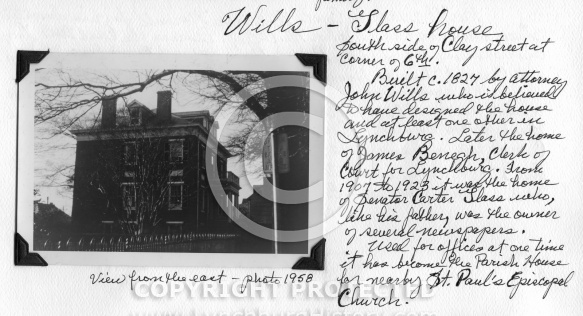 Wills - Glass house
South side of Clay street at
corner of 6th.
Built c. 1827 by attorney
John Wills who is believed
to have designed the house
and at least one other in
Lynchburg. Later the home
of James Benagh, Clerk of
Court for Lynchburg. From
1907 to 1923 it was the home
of Senator Carter Glass who,
like his father, was the owner
of several newspapers.
Used for offices at one time
it has become the Parish House
for nearby St. Paul's Episcopal
Church.
View from the east - photo 1958
COPYRIGHT PROTECTED